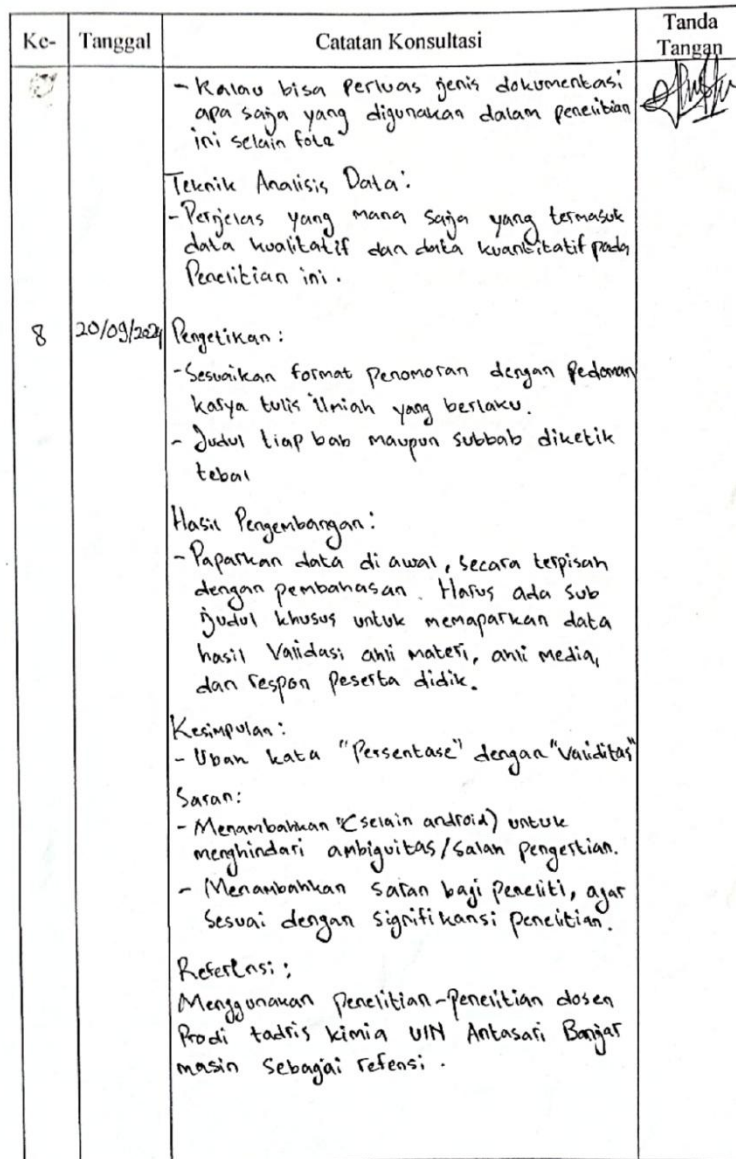 Ke-
Tanggal
Catatan Konsultasi
Tanda
Tangan
- Kalau bisa perluas jenis dokumentasi
apa saja yang digunakan dalam penelitian
ini selain foto
Teknik Analisis Data:
- Perjelas yang mana saja yang termasuk
data kualitatif dan data kuantitatif pada
Penelitian ini.
8
20/09/2024
Pengetikan:
- Sesuaikan format penomoran dengan pedoman
karya tulis ilmiah yang berlaku.
- Judul tiap bab maupun subbab diketik
tebal
Hasil Pengembangan:
- Paparkan data di awal, secara terpisah
dengan pembahasan. Harus ada sub
judul khusus untuk memaparkan data
hasil validasi ahli materi, ahli media,
dan respon peserta didik.
Kesimpulan:
- Ubah kata "Persentase" dengan "validitas"
Saran:
- Menambahkan "(selain android) untuk
menghindari ambiguitas/salah pengertian.
- Menambahkan saran bagi peneliti, agar
sesuai dengan signifikansi penelitian.
Referensi:
Menggunakan penelitian-penelitian dosen
Prodi tadris kimia UIN Antasari Banjar
masin sebagai refensi.